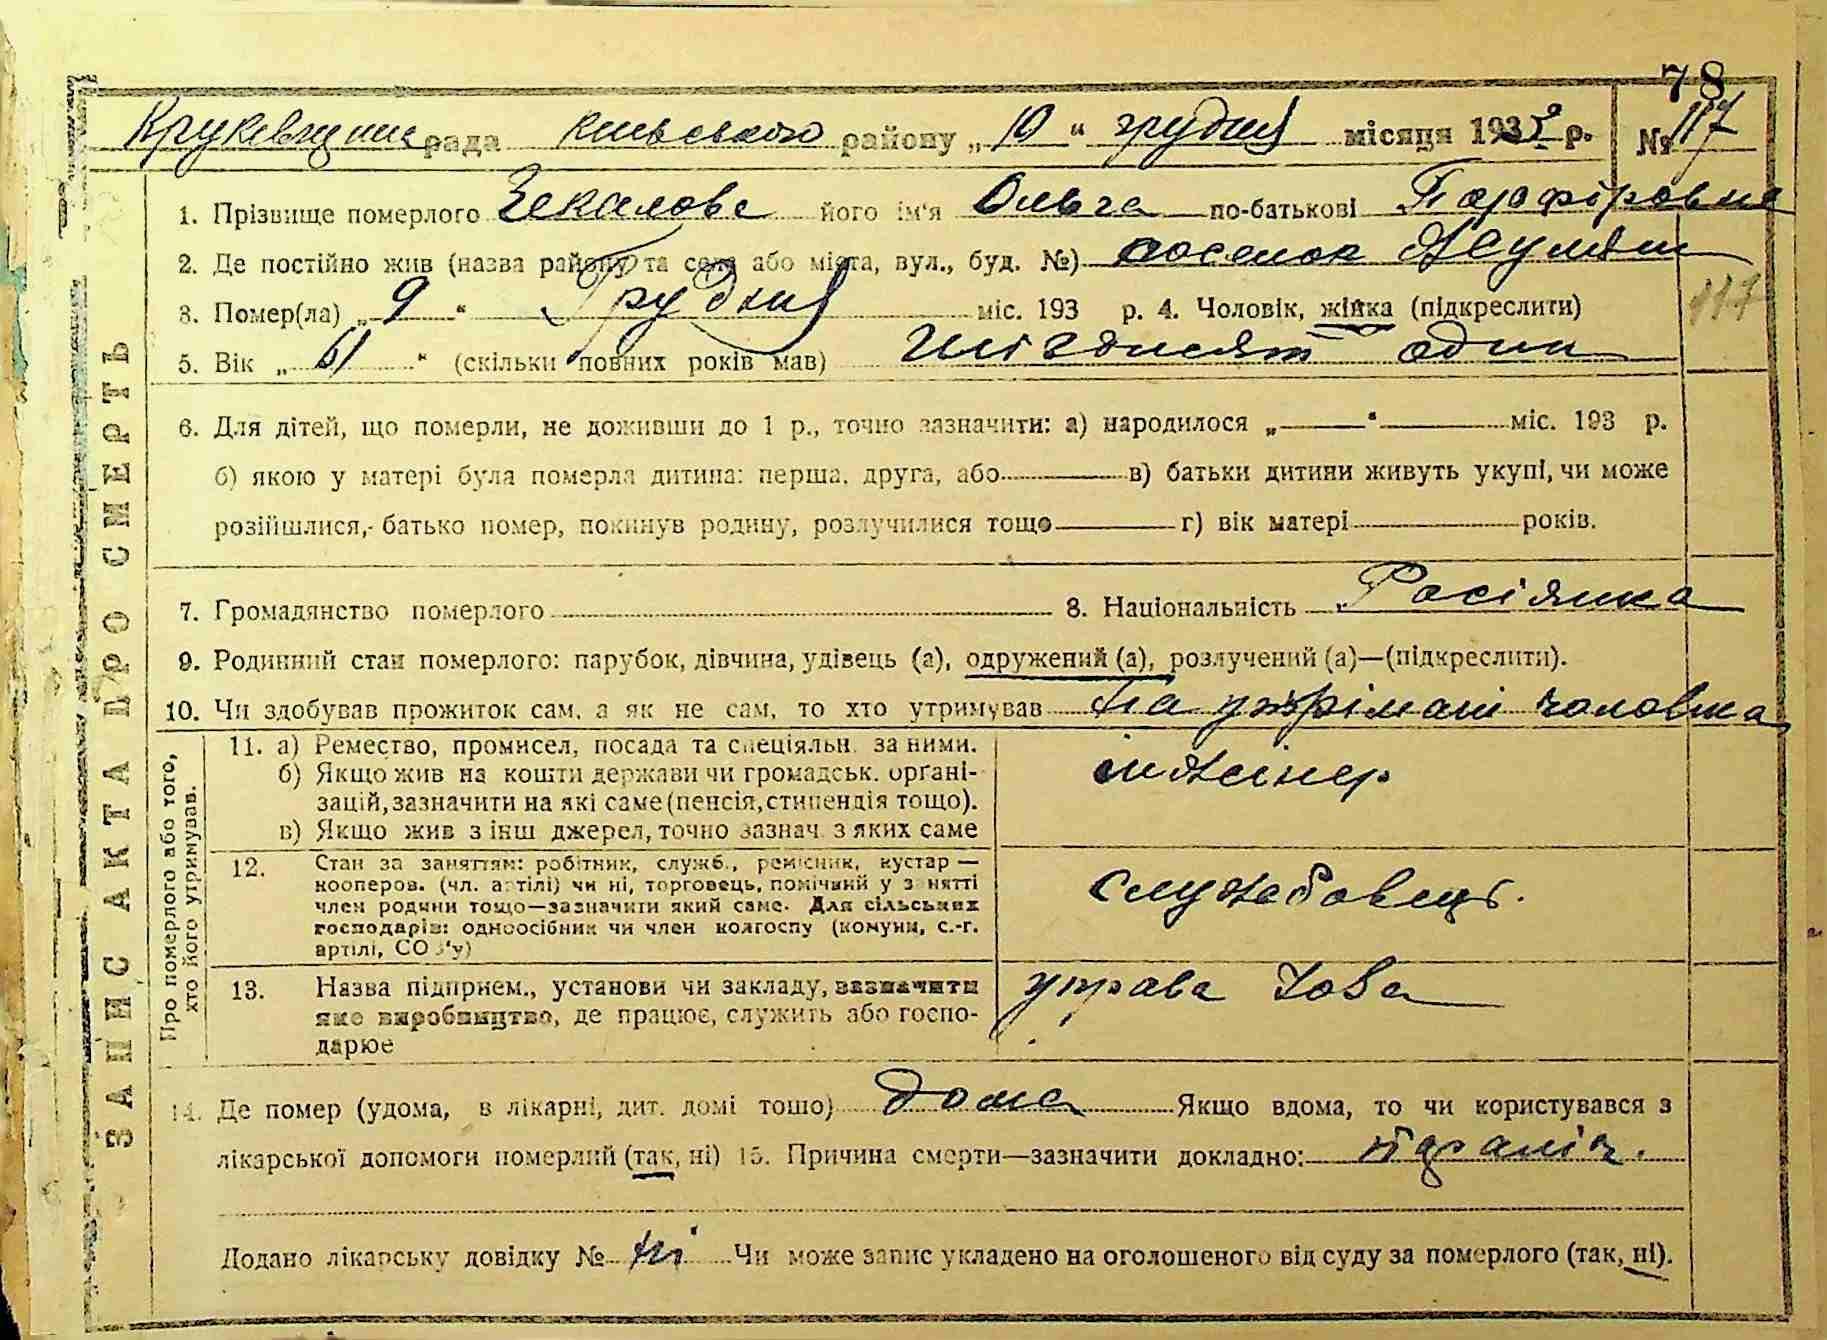 78
рада київського району „10“ грудня місяця 1932 р. № 117
ЗАПИС АКТА ПРО СМЕРТЬ
1. Прізвище померлого його ім'я Ольга по-батькові Порфіровна
2. Де постійно жив (назва району та села або міста, вул., буд. №) поселок Жуляни
117
3. Помер(ла) „9“ Грудня міс. 193 р. 4. Чоловік, жінка (підкреслити)
5. Вік „61“ (скільки повних років мав) один
6. Для дітей, що померли, не доживши до 1 р., точно зазначити: а) народилося „ “ міс. 193 р.
б) якою у матері була померла дитина: перша, друга, або в) батьки дитини живуть укупі, чи може
розійшлися,- батько помер, покинув родину, розлучилися тощо г) вік матері років.
7. Громадянство померлого 8. Національність Росіянка
9. Родинний стан померлого: парубок, дівчина, удівець (а), одружений (а), розлучений (а)—(підкреслити).
10. Чи здобував прожиток сам, а як не сам, то хто утримував на утрімані чоловіка
Про померлого або того,
хто його утримував.
11. а) Ремество, промисел, посада та спеціяльн. за ними.
б) Якщо жив на кошти держави чи громадськ. органі-
зацій, зазначити на які саме (пенсія, стипендія тощо).
в) Якщо жив з інш джерел, точно зазнач. з яких саме
інжінер
12. Стан за заняттям: робітник, служб., ремісник, кустар —
кооперов. (чл. артілі) чи ні, торговець, помічний у з нятті
член родини тощо—зазначити який саме. Для сільських
господарів: одноосібник чи член колгоспу (комуни, с.-г.
артілі, СО З'у)
службовець.
13. Назва підприєм., установи чи закладу, зазначити
яке виробництво, де працює, служить або госпо-
дарює
управа
14. Де помер (удома, в лікарні, дит. домі тощо) дома Якщо вдома, то чи користувався з
лікарської допомоги померлий (так, ні) 15. Причина смерти—зазначити докладно:
Додано лікарську довідку № ні Чи може запис укладено на оголошеного від суду за померлого (так, ні).